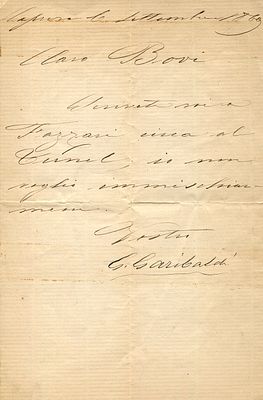 Caprera 6 Settembre 1869
Caro Bovi
Scrivete voi a
Fazzari circa al
Túnel, io non
voglio immischiar-
mene.
Vostro
G. Garibaldi